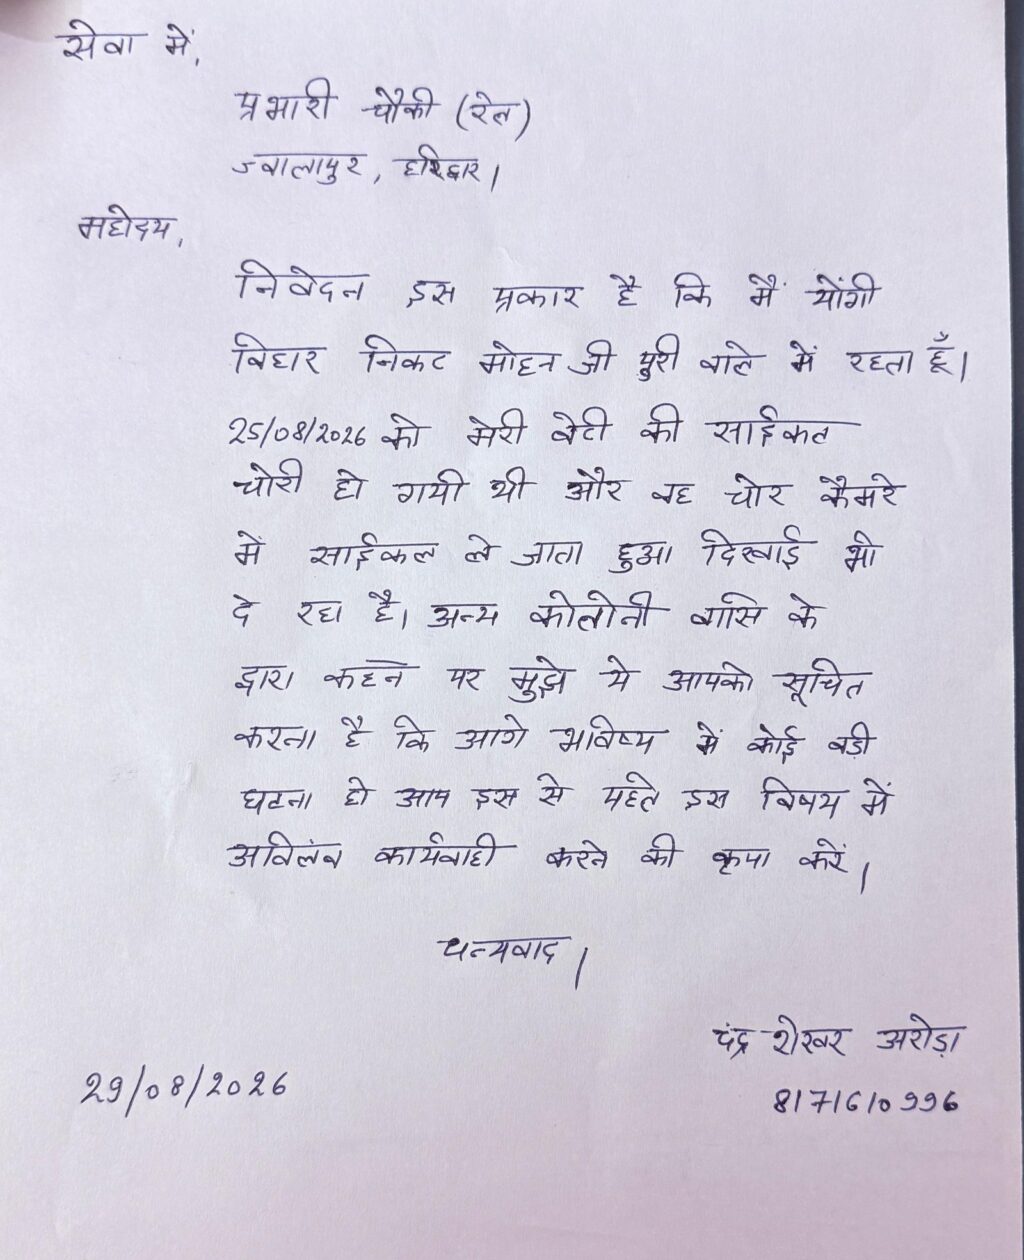 सेवा में,
प्रभारी चौकी (रेल)
ज्वालापुर, हरिद्वार।
महोदय,
निवेदन इस प्रकार है कि मैं योगी
विहार निकट मोहन जी पुरी वाले में रहता हूँ।
25/08/2026 को मेरी बेटी की साईकल
चोरी हो गयी थी और वह चोर कैमरे
में साईकल ले जाता हुआ दिखाई भी
दे रहा है। अन्य कोलोनी वासि के
द्वारा कहने पर मुझे ये आपको सूचित
करना है कि आगे भविष्य में कोई बड़ी
घटना हो आप इस से पहले इस विषय में
अविलंब कार्यवाही करने की कृपा करें।
धन्यवाद।
चंद्र शेखर अरोड़ा
29/08/2026
8171610996